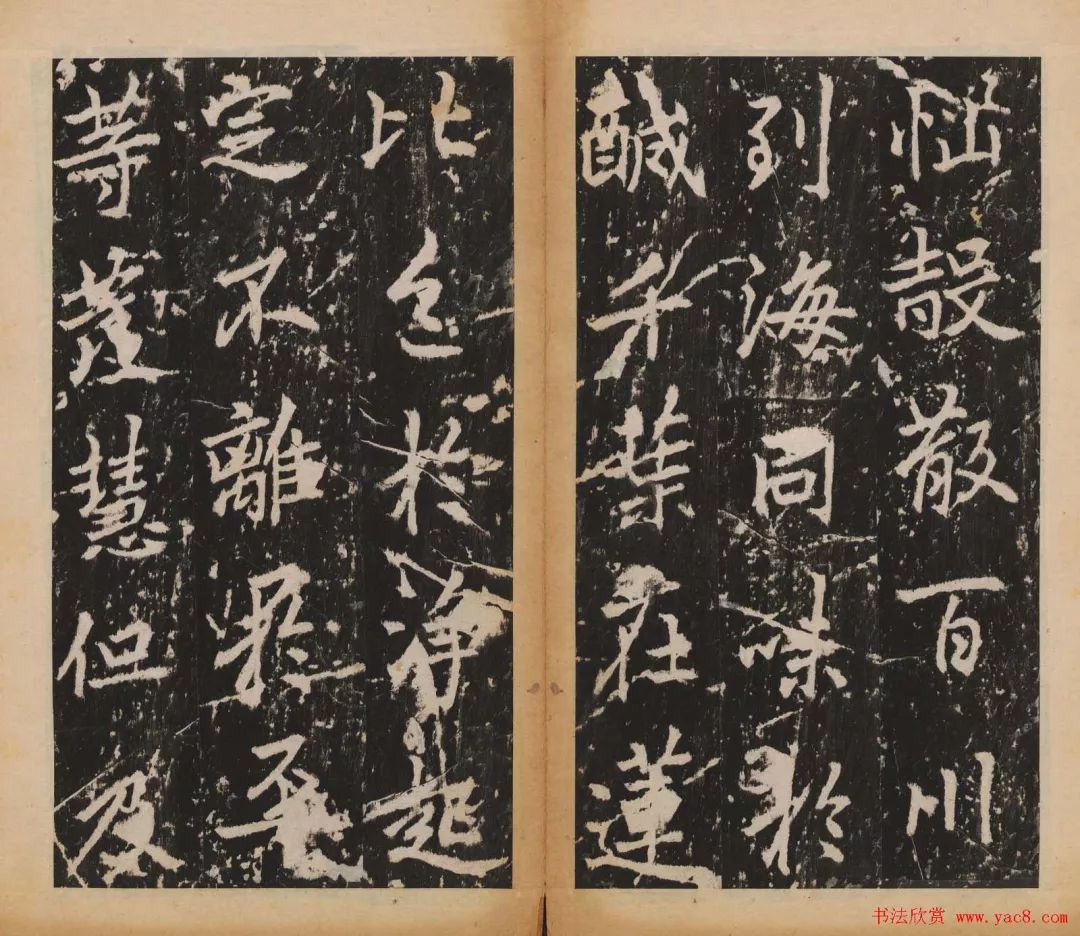 殼散百川
到海同味於
鹹千葉在蓮
比色於淨起
定不離於平
等發慧但及
书法欣赏 www.yac8.com